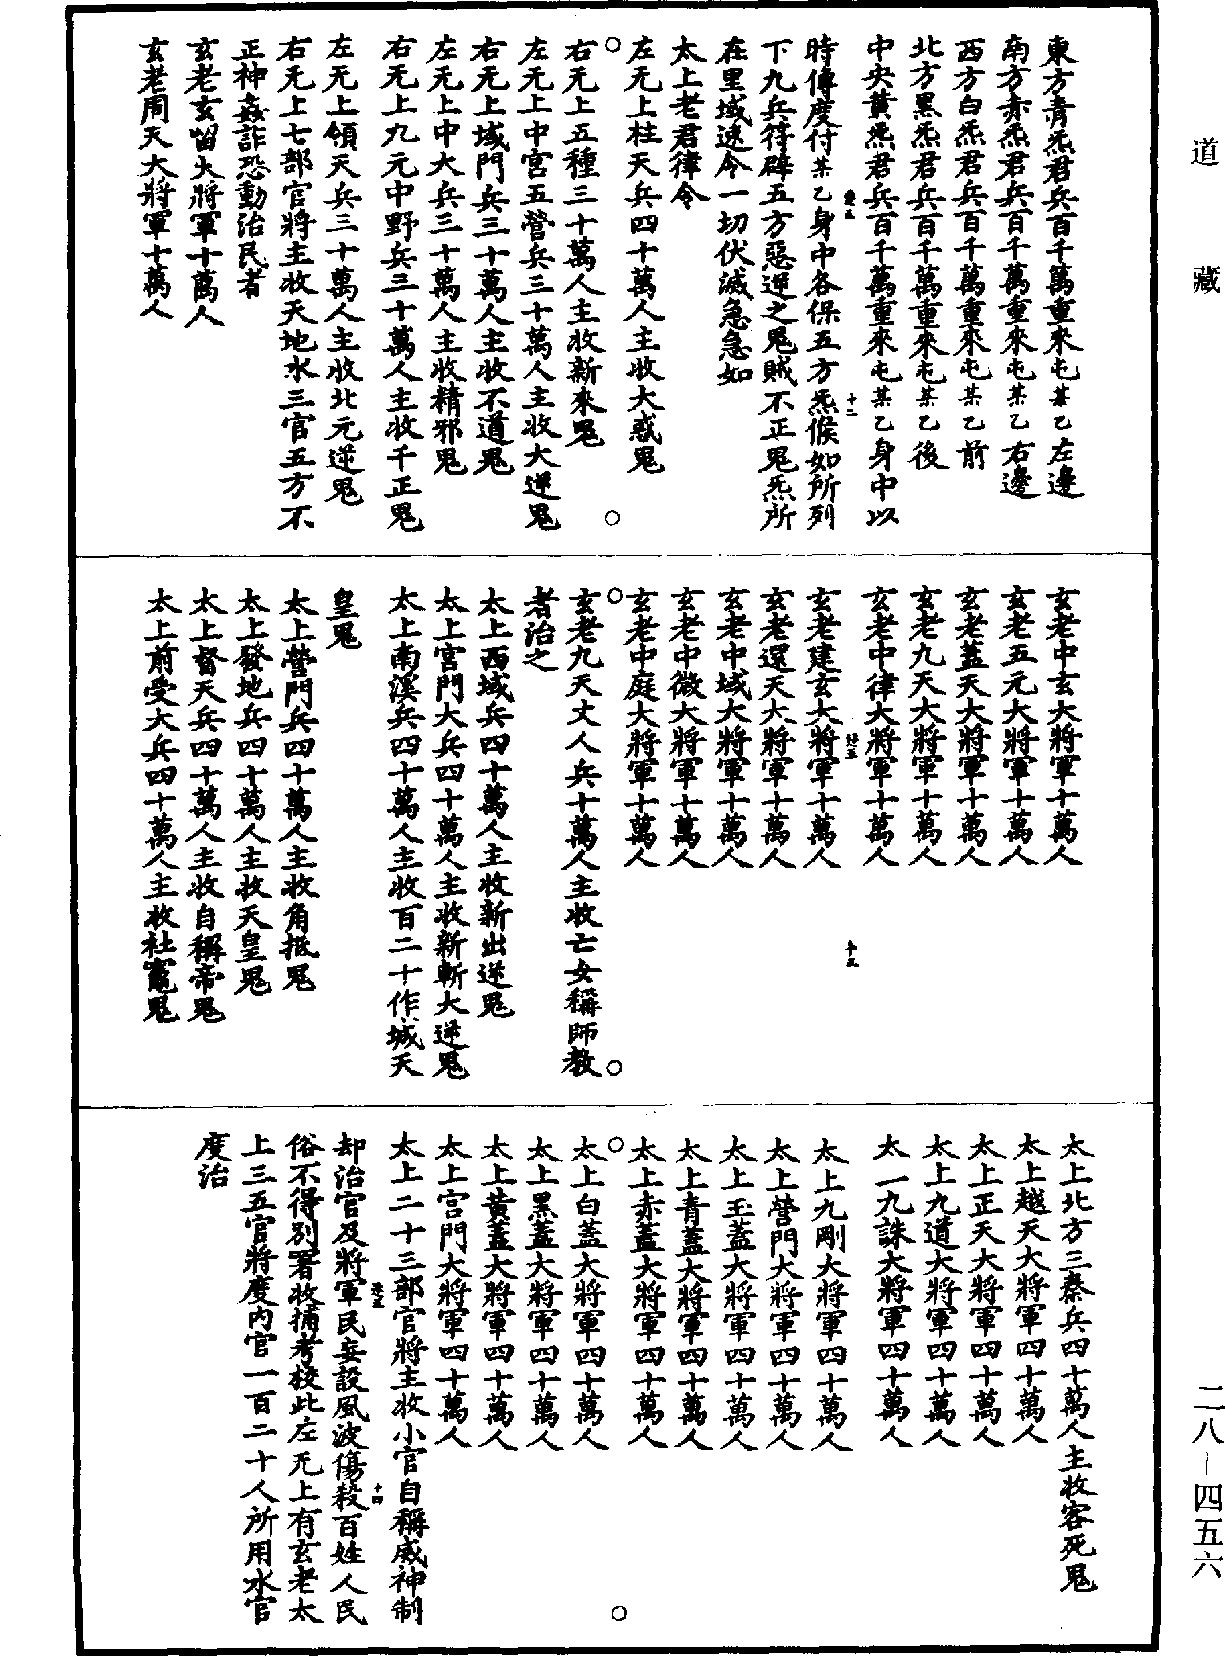 道藏
東方青炁君兵百千萬重來屯某乙左邊
南方赤炁君兵百千萬重來屯某乙右邊
西方白炁君兵百千萬重來屯某乙前
北方黑炁君兵百千萬重來屯某乙後
中央黃炁君兵百千萬重來屯某乙身中以
十二
時傳度付某乙身中各保五方炁候如所列
下九兵符辟五方惡逆之鬼賊不正鬼炁所
在里域速令一切伏滅急急如
太上老君律令
左无上柱天兵四十萬人主收大惑鬼
右无上五種三十萬人主收新來鬼
左无上中宮五營兵三十萬人主收大逆鬼
右无上域門兵三十萬人主收不道鬼
左无上中大兵三十萬人主收精邪鬼
右无上九元中野兵三十萬人主收千正鬼
左无上領天兵三十萬人主收北元逆鬼
右无上七部官將主收天地水三官五方不
正神姦詐恐動治民者
玄老玄留大將軍十萬人
玄老周天大將軍十萬人
玄老中玄大將軍十萬人
玄老五元大將軍十萬人
玄老蓋天大將軍十萬人
玄老九天大將軍十萬人
玄老中律大將軍十萬人
十三
玄老建玄大將軍十萬人
玄老還天大將軍十萬人
玄老中域大將軍十萬人
玄老中微大將軍十萬人
玄老中庭大將軍十萬人
玄老九天丈人兵十萬人主收亡女稱師教
者治之
太上西域兵四十萬人主收新出逆鬼
太上宮門大兵四十萬人主收新斬大逆鬼
太上南溪兵四十萬人主收百二十作城天
皇鬼
太上營門兵四十萬人主收角抵鬼
太上發地兵四十萬人主收天皇鬼
太上督天兵四十萬人主收自稱帝鬼
太上前受大兵四十萬人主收社竈鬼
太上北方三秦兵四十萬人主收客死鬼
太上越天大將軍四十萬人
太上正天大將軍四十萬人
太上九道大將軍四十萬人
太一九誅大將軍四十萬人
太上九剛大將軍四十萬人
太上營門大將軍四十萬人
太上玉蓋大將軍四十萬人
太上青蓋大將軍四十萬人
太上赤蓋大將軍四十萬人
太上白蓋大將軍四十萬人
太上黑蓋大將軍四十萬人
太上黃蓋大將軍四十萬人
太上宮門大將軍四十萬人
太上二十三部官將主收小官自稱威神制
十四
却治官及將軍民妄設風波傷殺百姓人民
俗不得別署收捕考校此左无上有玄老太
上三五官將度內官一百二十人所用水官
度治
二八-四五六